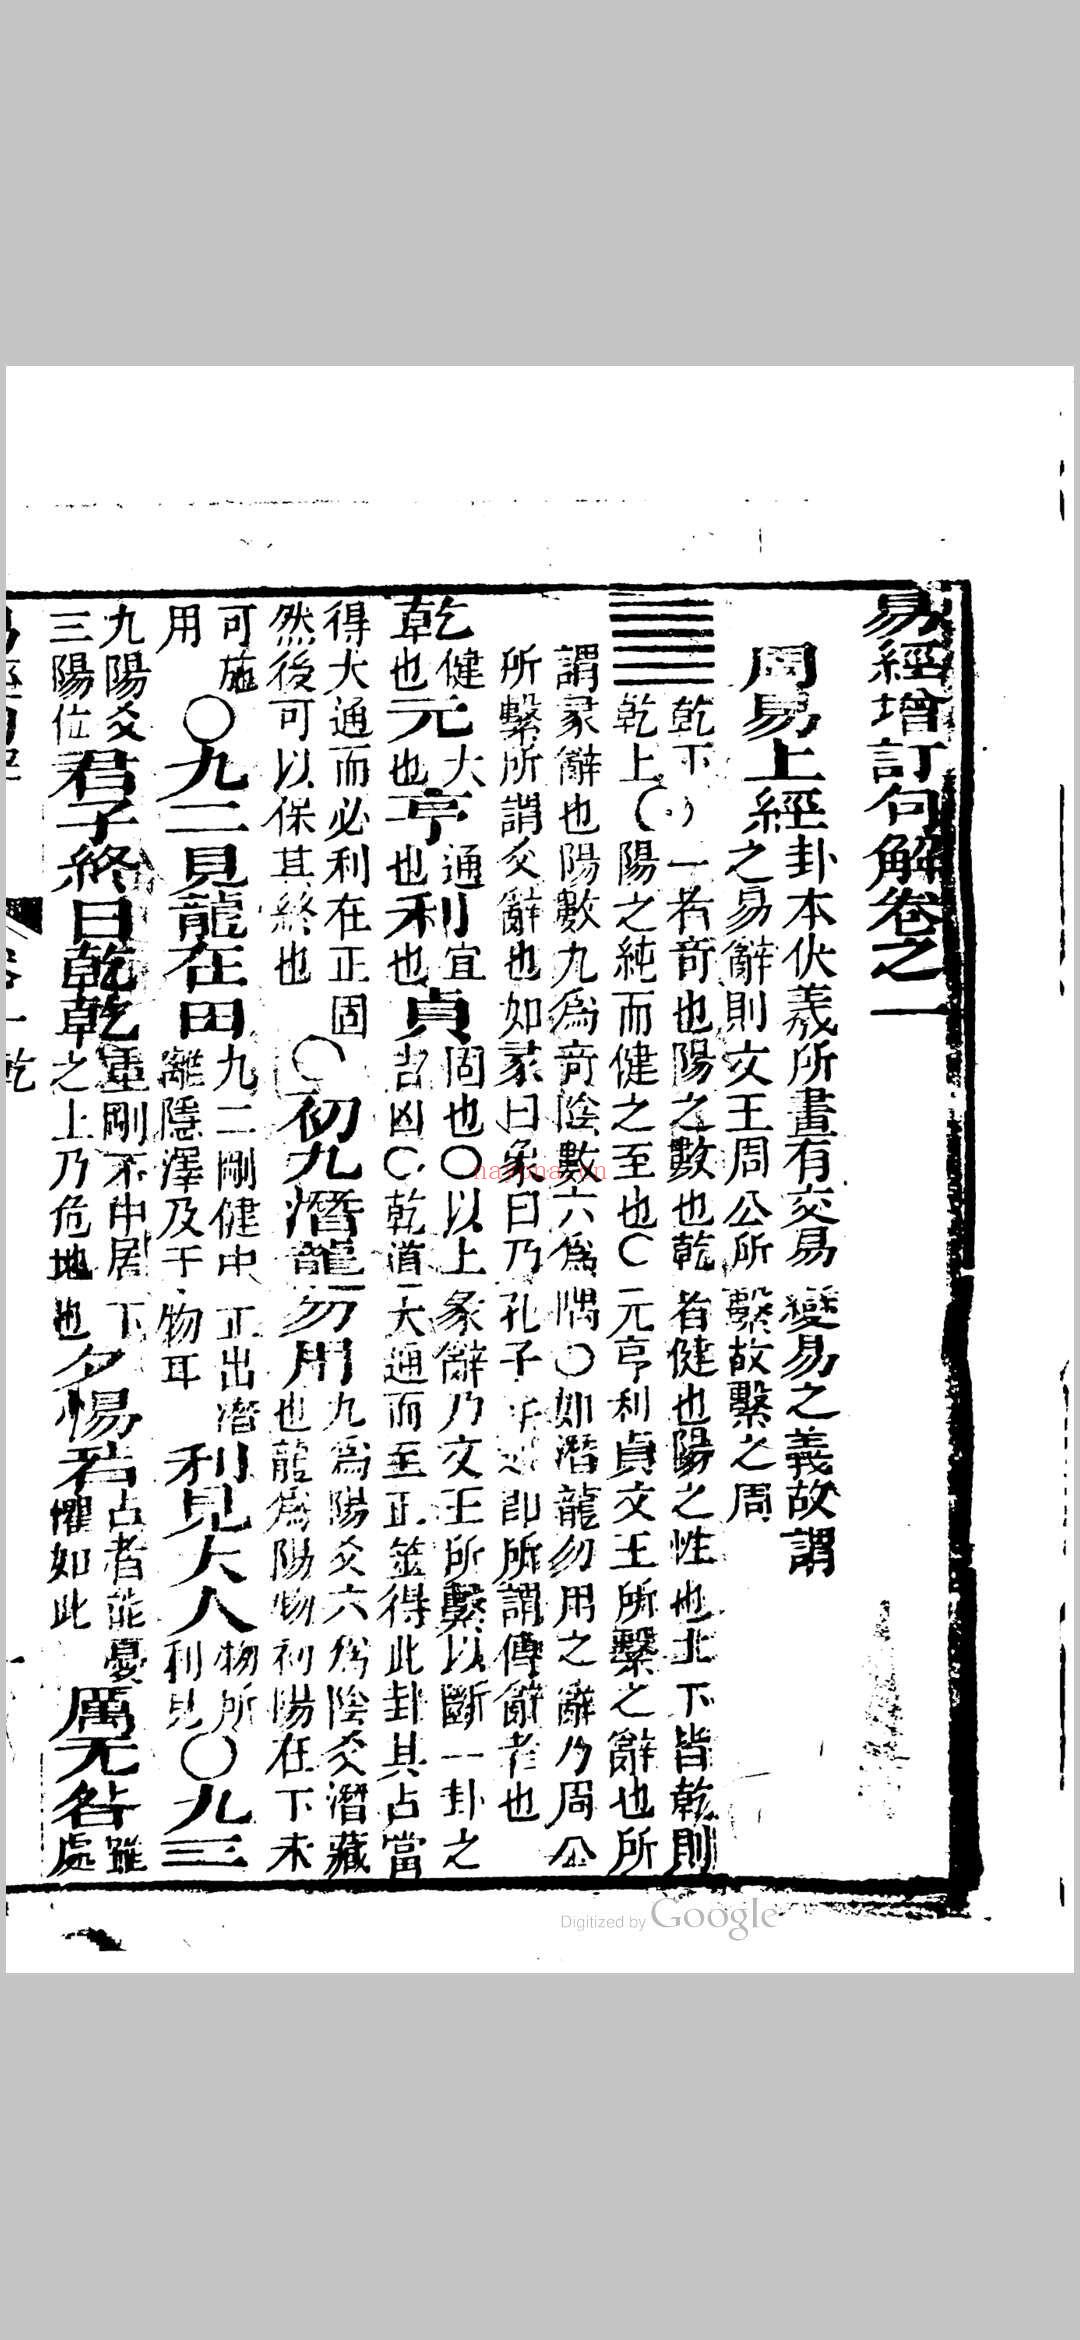 易經增訂句解卷之一
周易上經
卦本伏羲所畫有交易變易之義故謂
之易辭則文王周公所繫故繫之周
乾下 一者奇也陽之數也乾者健也陽之性也此下皆乾則
乾上 陽之純而健之至也〇元亨利貞文王所繫之辭也所
謂彖辭也陽數九為奇陰數六為隅〇如潛龍勿用之辭乃周公
所繫所謂爻辭也如彖曰象曰乃孔子 即所謂傳辭者也
乾
健
也
元
大
也
亨
通
也
利
宜
也
貞
固也〇以上彖辭乃文王所繫以斷一卦之
吉凶〇乾道大通而至正筮得此卦其占當
得大通而必利在正固
然後可以保其終也
〇初九潛龍勿用
九為陽爻六為陰爻潛藏
也龍為陽物初陽在下未
可施
用
〇九二見龍在田
九二剛健中正出潛
離隱澤及于物耳
利見大人
物所
利見
〇九三
九陽爻
三陽位
君子終日乾乾
重剛不中居下
之上乃危地也
夕惕若
占者能憂
懼如此
厲无咎
雖
處
乾
一
Digitized by Google
nayona.cn